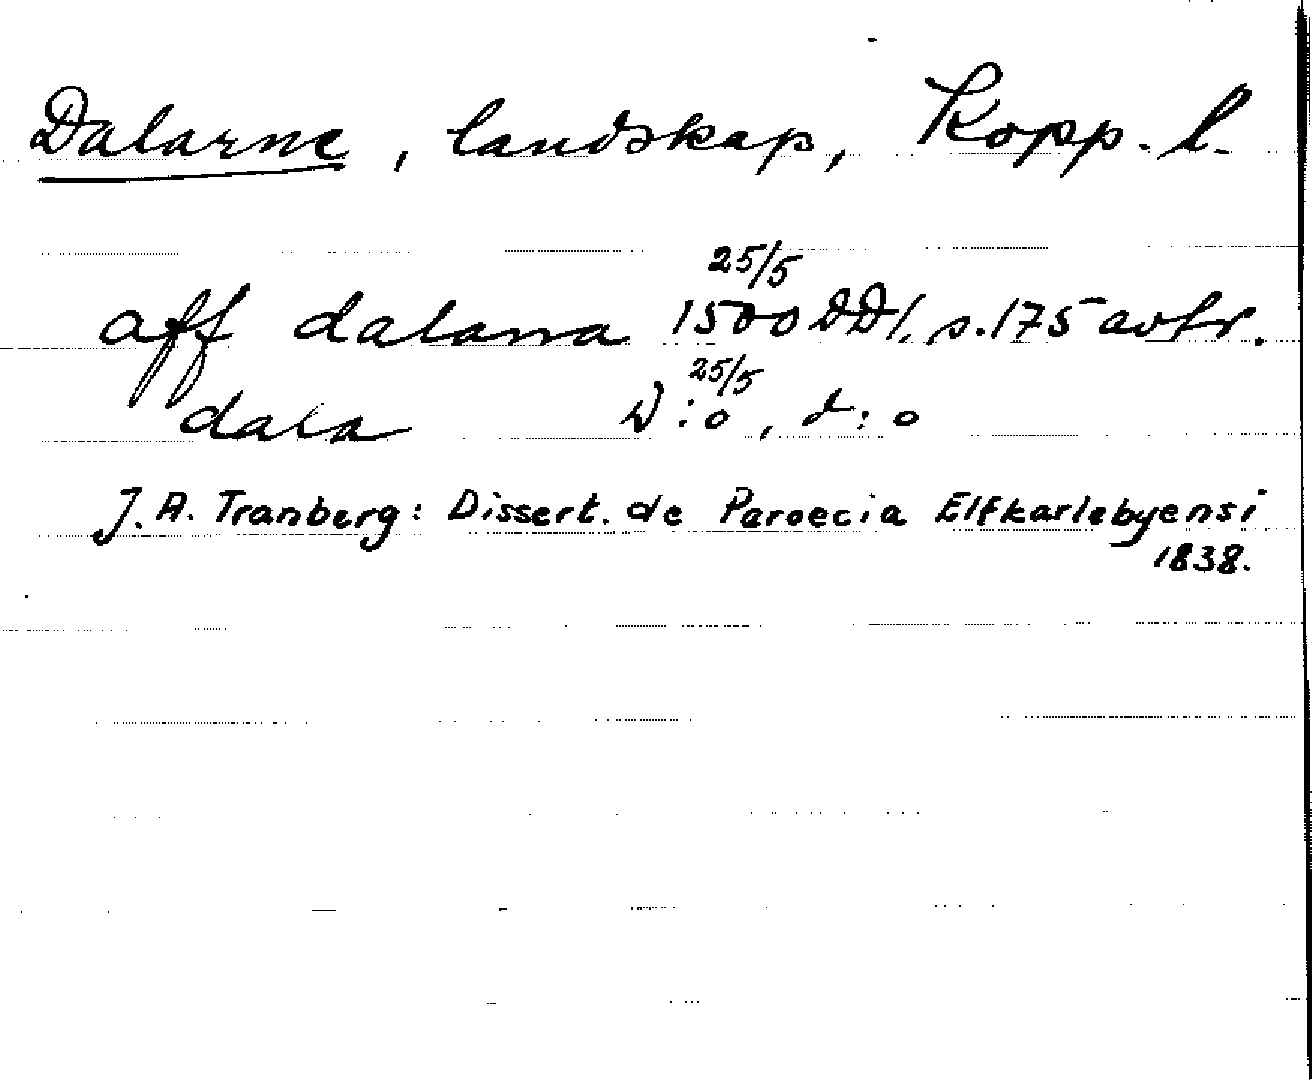 Dalarne, landskap, Kopp. l.
25/5
aff dalana 1500 DD1, s.175 avtr.
25/5
dala D:o, d:o
J. A. Tranberg: Dissert. de Paroecia Elfkarlebyensi
1838.